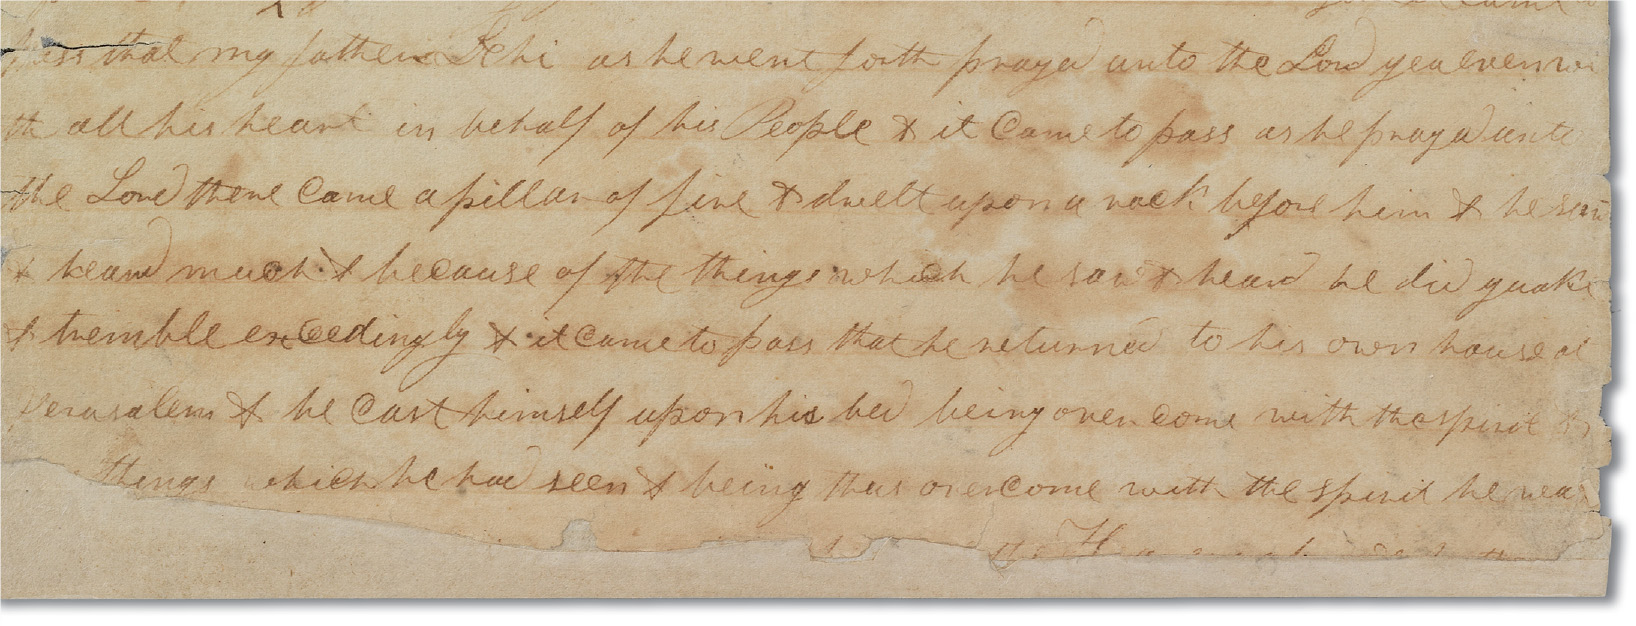 came
pass that my father Lehi as he went forth prayed unto the Lord yea even wi
th all his heart in behalf of his People & it Came to pass as he prayed unto
the Lord there Came a pillar of fire & dwelt upon a rock before him & he saw
& heard much & because of the things which he saw & heard he did quake
& tremble exceedingly & it Came to pass that he returned to his own house at
Jerusalem & he Cast himself upon his bed being over come with the spirit &
things which he had seen & being thus overcome with the spirit he was
the